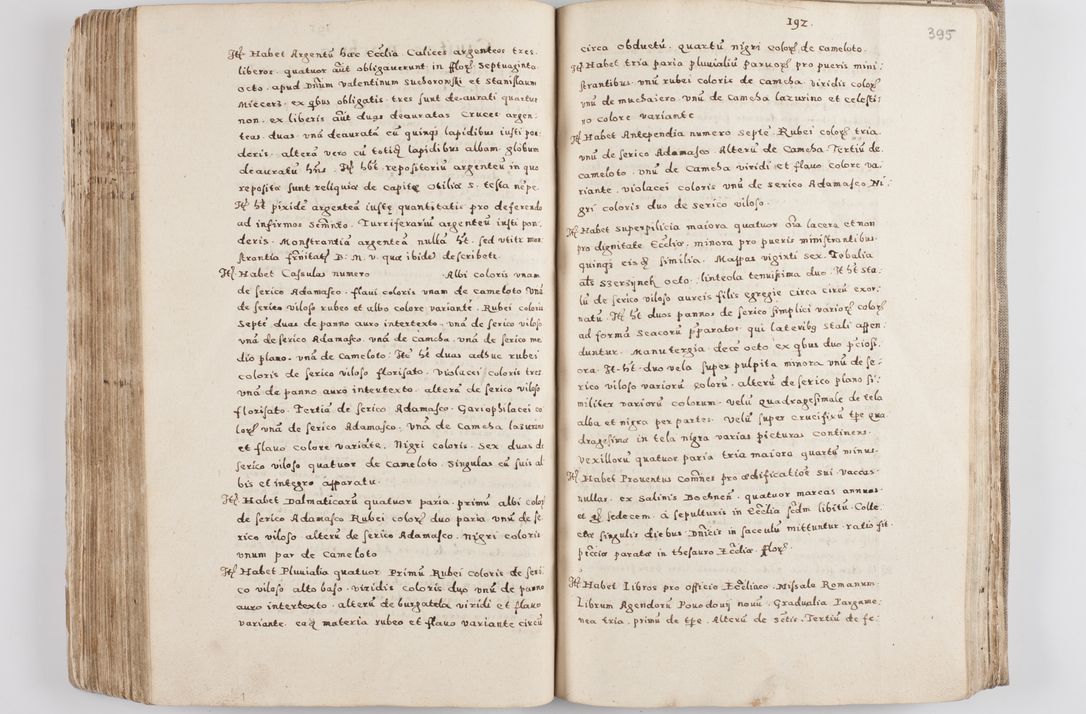 Itē Habet Argentū hac Ecclīa Calices argenteos tres
liberos quatuor aūt obligauerunt in florꝫ Septuaginta
octo apud Dnūm Valentinum Suchoronski et Stanislaum
Miecerz ex qbus obligatis tres sunt deaurati quartus
non. ex liberis aūt duas deauratas Cruces argen
teas duas vnā deauratā cū quinqꝫ lapidibus iusti pon
deris. alterā vero cū totidē lapidibus albam globum
deauratū hns. Itē hēt repositoriū argenteū in quo
reposita sunt reliquiæ de capite Otiliæ s. testa nēpe
Itē hēt pixidē argenteā iustę quantitatis pro deferendo
ad infirmos Scmnto. Turriferariū argenteū iusti pon:
deris. Monstrantiā argenteā nullā hēt. sed vtitr mon
strantia frnitatꝫ B: M. V. quæ ibidē describetr
Itē Habet Casulas numero Albi coloris vnam
de serico Adamasco. flaui coloris vnam de cameloto vnā
de serico viloso rubeo et albo colore variante. Rubei coloris
Septē. duas de panno auro intertexto. vnā de serico viloso
vnā de serico Adamasco. vnā de Camcha. vnā de serico me
dio plano. vnā de Cameloto. Itē hēt duas adhuc rubei
coloris de serico viloso florisato. Violacei coloris tres
vnā de panno auro intertexto. alterā de serico viloso
florisato. Tertiā de serico Adamasco. Gariophilacei co
lorꝫ vnā de serico Adamasco. Vnā de Camcha lazurino
et flauo colore variāte. Nigri coloris. Sex duas de
serico viloso quatuor de Cameloto. Singulas cū suis al
bis et integro apparatu.
Itē Habet Dalmaticarū quatuor paria. primū albi colorꝫ
de serico Adamasco Rubei colorꝫ duo paria vnū de se
rico viloso alterū de serico Adamasco. Nigri coloris
vnum par de Cameloto
Itē Habet Pluuialia quatuor Primū Rubei coloris de seri
co viloso alto baso. viridis coloris duo vnū de panno
auro intertexto. alterū de burgatela viridi et flauo
variante. eadē materia rubeo et flauo variante circū
192.
395
circa obductū. quartū nigri colorꝫ de cameloto.
Itē Habet tria paria pluuialiū paruorꝫ pro pueris mini
strantibus. vnū rubei coloris de camcha. viridis colorꝫ
vnū de muchaiero. vnū de camcha lazurino et celesti
no colore variante
Itē Habet Antependia numero septē. Rubei colorꝫ tria.
vnū de serico Adamasco. Alterū de Camcha. Tertiū de
cameloto. vnū de Camcha viridi et flauo colore va:
riante. violacei coloris vnū de serico Adamasco. Ni
gri coloris duo de serico viloso.
Itē Habet Superpilicia maiora quatuor oīa lacera et non
pro dignitate Ecclīæ. minora pro pueris ministrantibus
quinqꝫ eisdē similia. Mappas viginti sex. Tobalia
aīs szersynek octo. linteola tenuissima duo. Itē hēt sta
lū de serico viloso aureis filis egregie circa circū exor
natū. Itē hēt duos pannos de serico simplici variorꝫ colorꝫ
ad formā Seacorū pparatos qui lateribꝫ stali appen:
duntur. Manutergia decē octo ex qbus duo pciosi
ora. It. hēt duo vela super pulpita minora vnū de se:
rico viloso variorū colorū. alterū de serico plano si:
militer variorū colorum. velū quadragesimale de tela
alba et nigra per partes. Velū super Crucifixū tpe qua
dragesimæ in tela nigra varias picturas continens.
Vexillorū quatuor paria tria maiora quartū minus.
Itē Habet Prouentus comnes pro ædificatioē sui. vaccas
nullas. ex Salinis Bochnen. quatuor marcas annuas
et gꝫ sedecem. à sepulturis in Ecclīa scdm libitū. Colle:
ctæ singulis diebus Dnīcis in sacculū mittuntur. ratio fit.
pecciæ paratæ in thesauro Ecclīæ florꝫ.
Itē Habet Libros pro officio Ecclīaco. Missale Romanum.
Librum Agendorū Powodowij nouū. Gradualia Pargame:
nea tria. primū de tpe. Alterū de Sctis. Tertiū de fe: